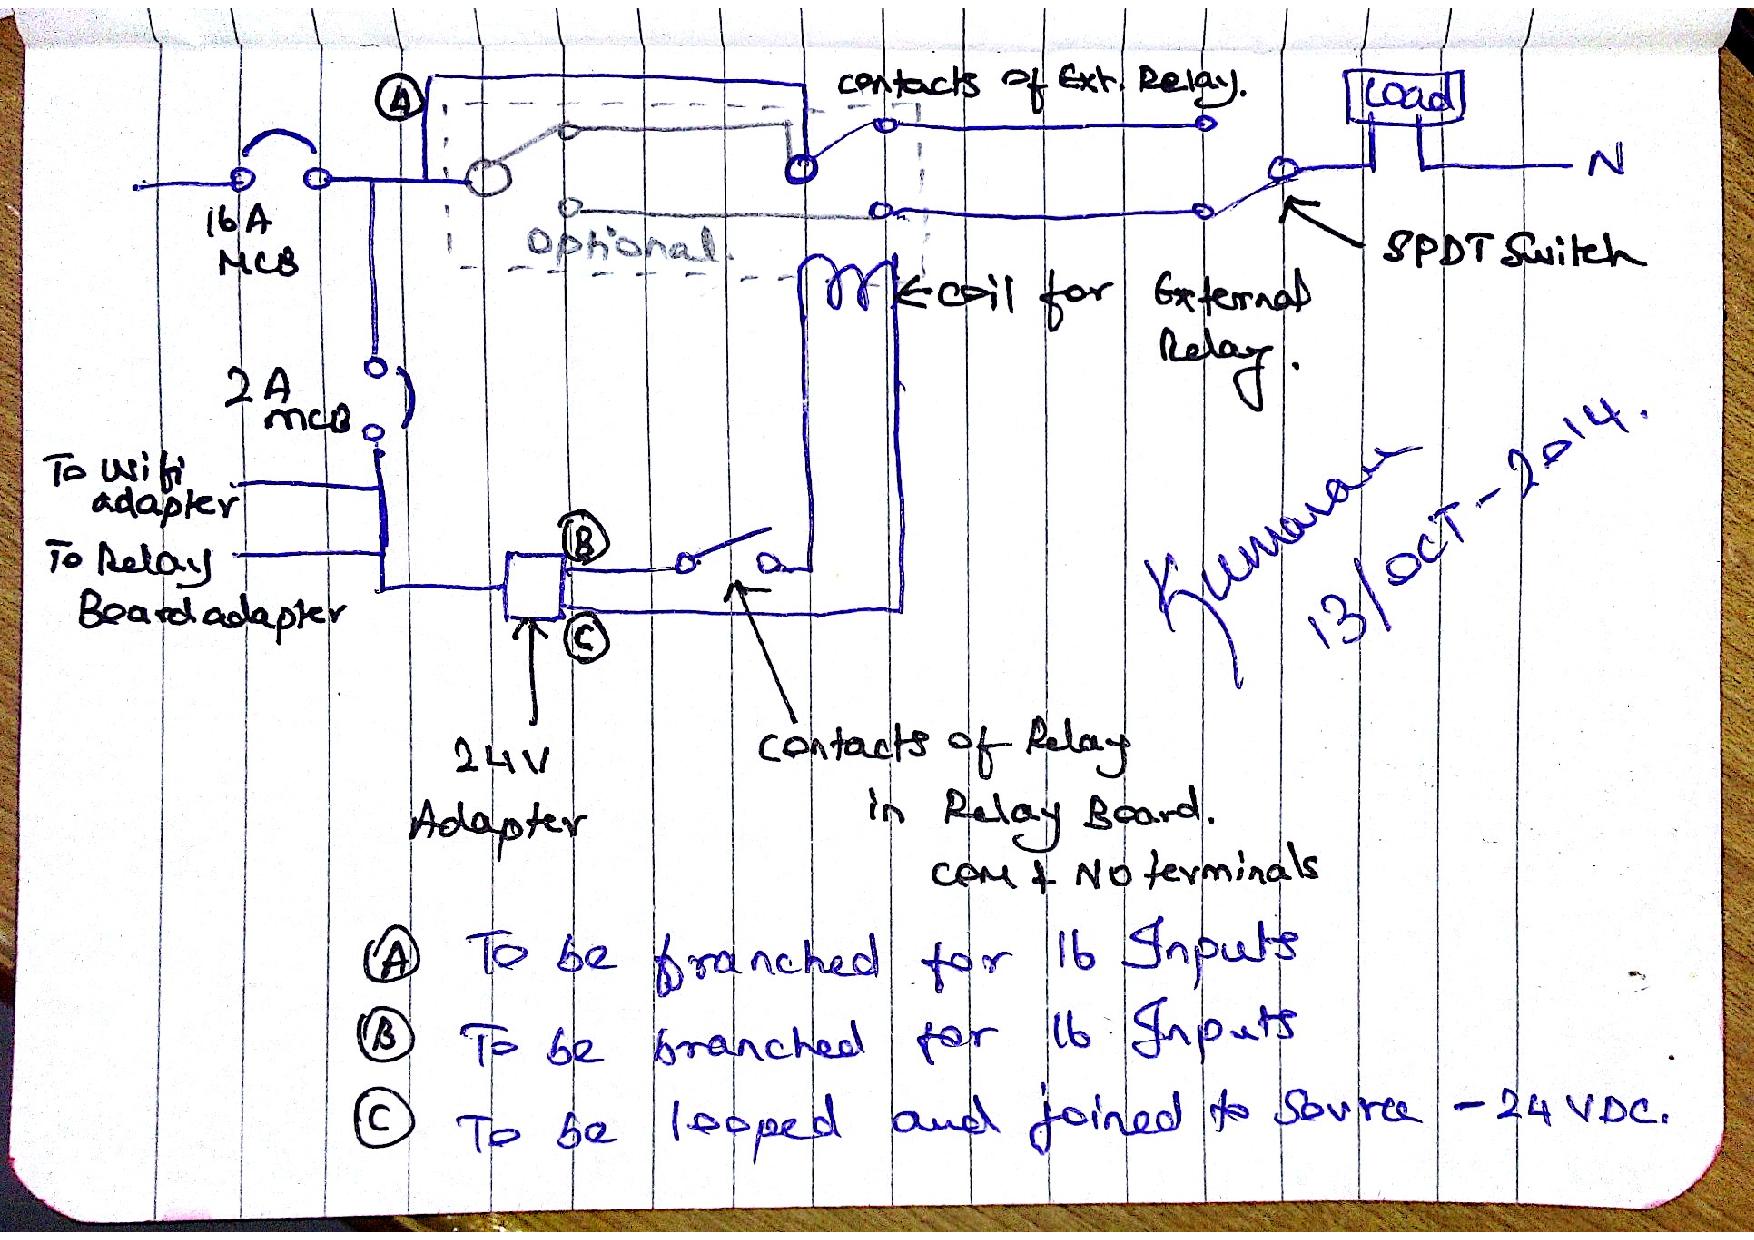 A
contacts of Ext. Relay.
Load
N
16A
MCB
Optional.
SPDT Switch
coil for External
Relay.
2A
MCB
To Wifi
adapter
To Relay
Board adapter
B
C
24V
Adapter
contacts of Relay
in Relay Board.
COM & NO terminals
Kumaran
13/OCT-2014.
A To be branched for 16 Inputs
B To be branched for 16 Inputs
C To be looped and joined to Source - 24 VDC.